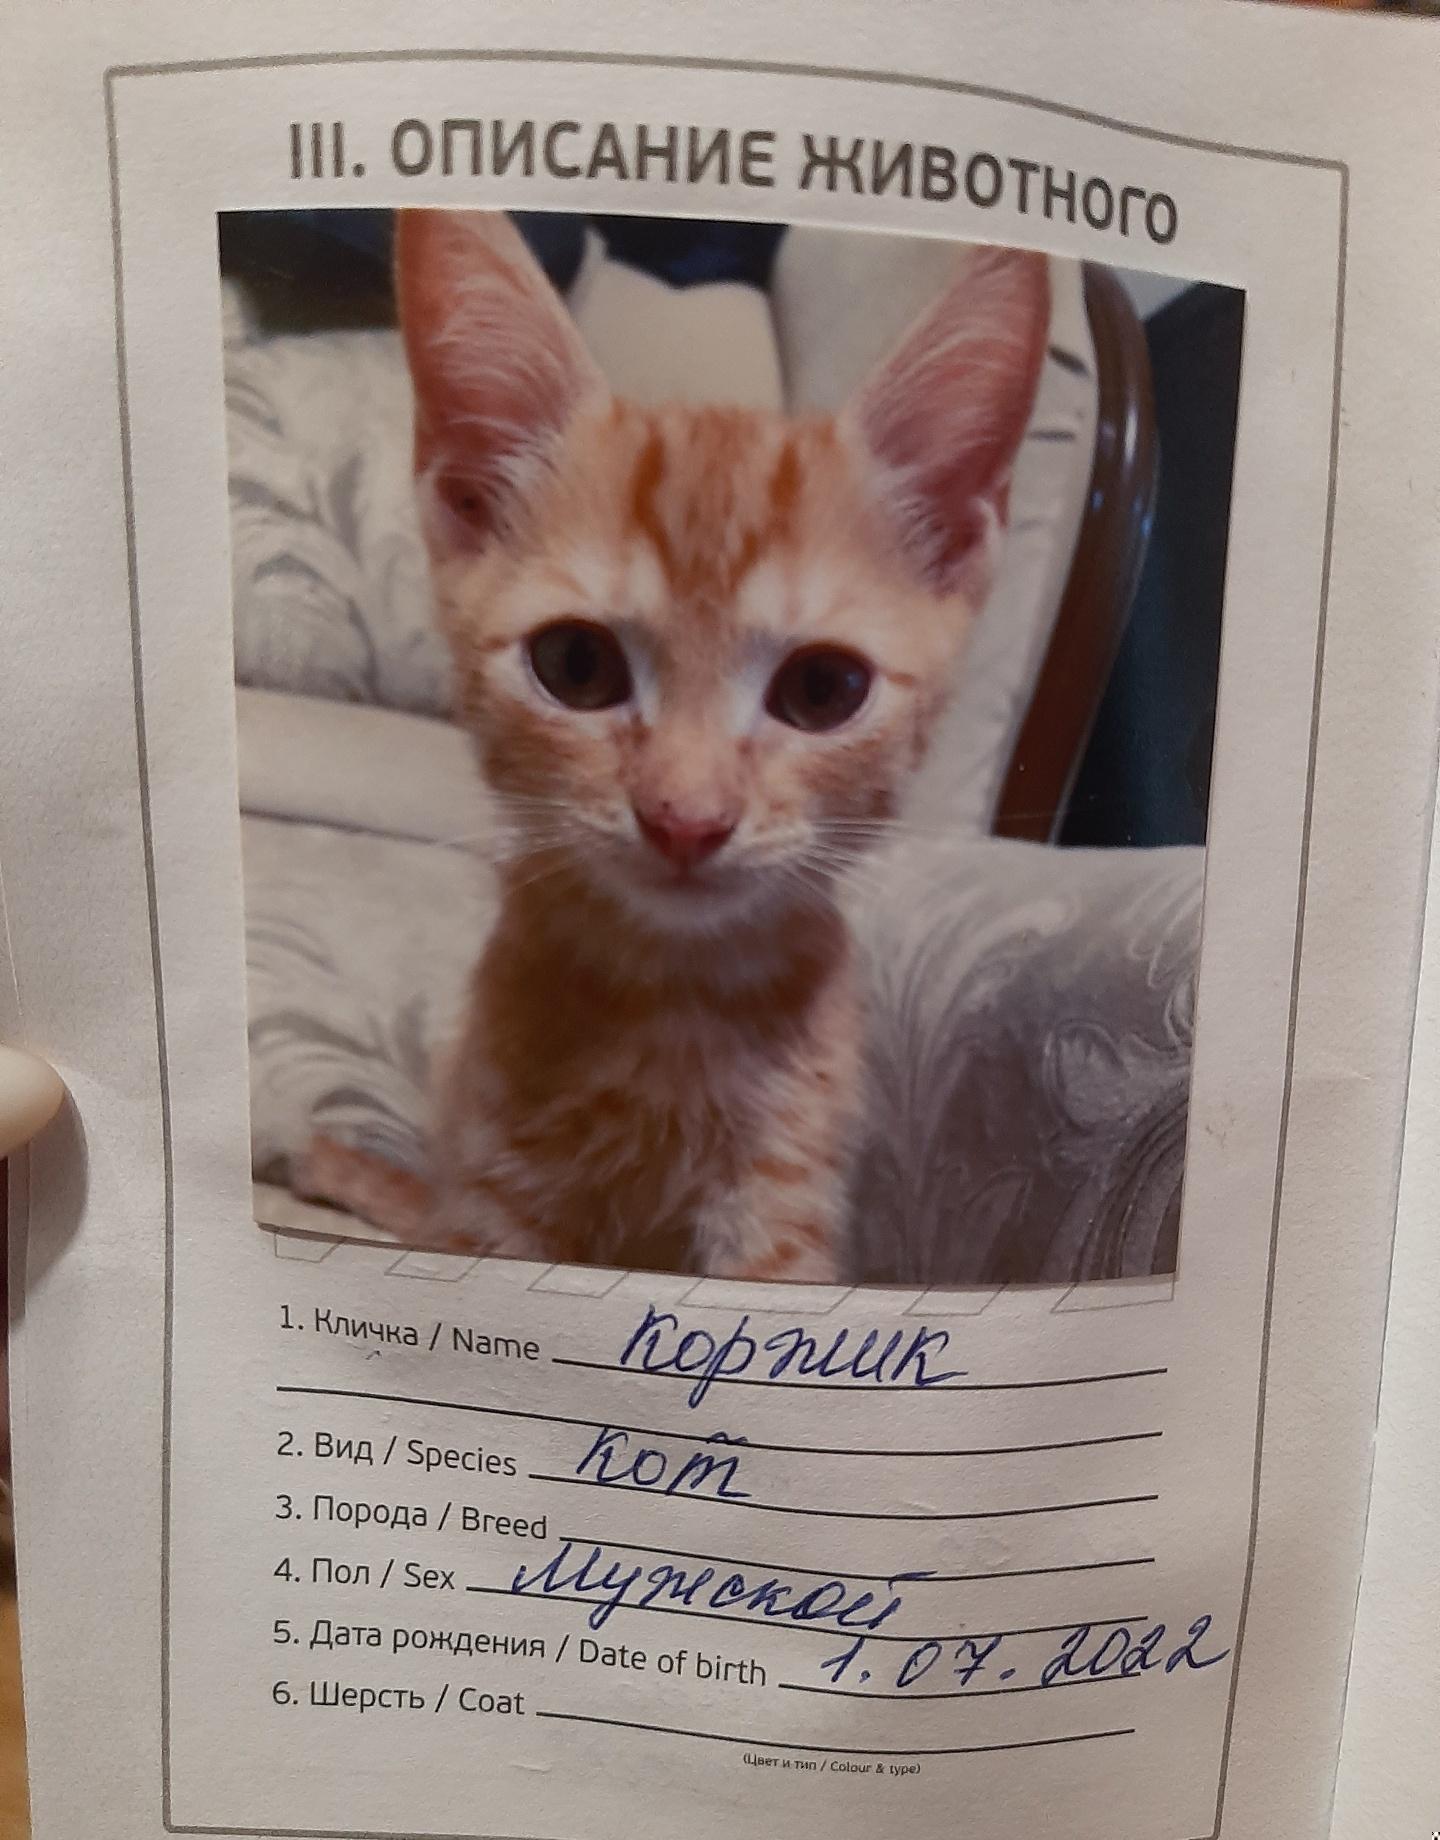 III. ОПИСАНИЕ ЖИВОТНОГО
1. Кличка / Name Коржик
2. Вид / Species Кот
3. Порода / Breed
4. Пол / Sex Мужской
5. Дата рождения / Date of birth 1.07.2022
6. Шерсть / Coat
(Цвет и тип / Colour & type)